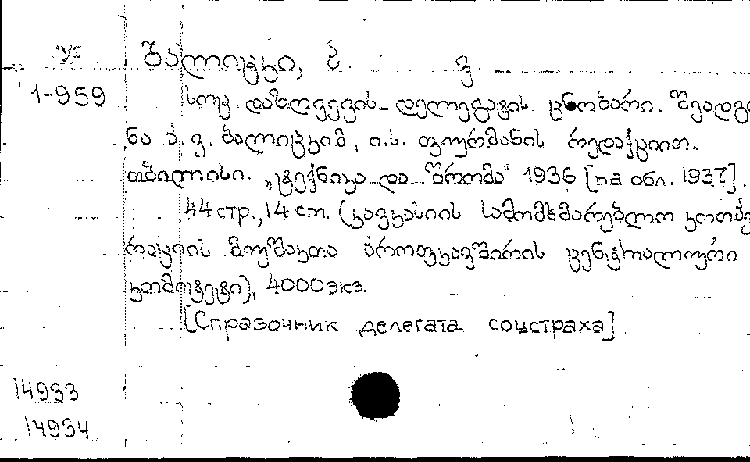 1-959
ბალიცკი, ბ. ვ
სოც. დაზღვევის დელეგატის ცნობარი. შეადგი-
ნა ბ. ვ. ბალიცკიმ, ი.ს. ფურმანის რედაქციით.
თბილისი. „ტექნიკა და შრომა" 1936 [на обл. 1937].
44 стр., 14 cm. (კავკასიის სამომხმარებლო კოოპე-
რაციის მუშაკთა პროფკავშირის ცენტრალური
კომიტეტი), 4000 экз.
[Справочник делегата соцстраха]
14933
14934